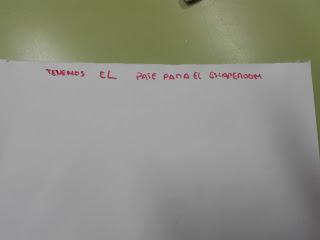 TENEMOS EL PASE PARA EL ESCAPEROOM